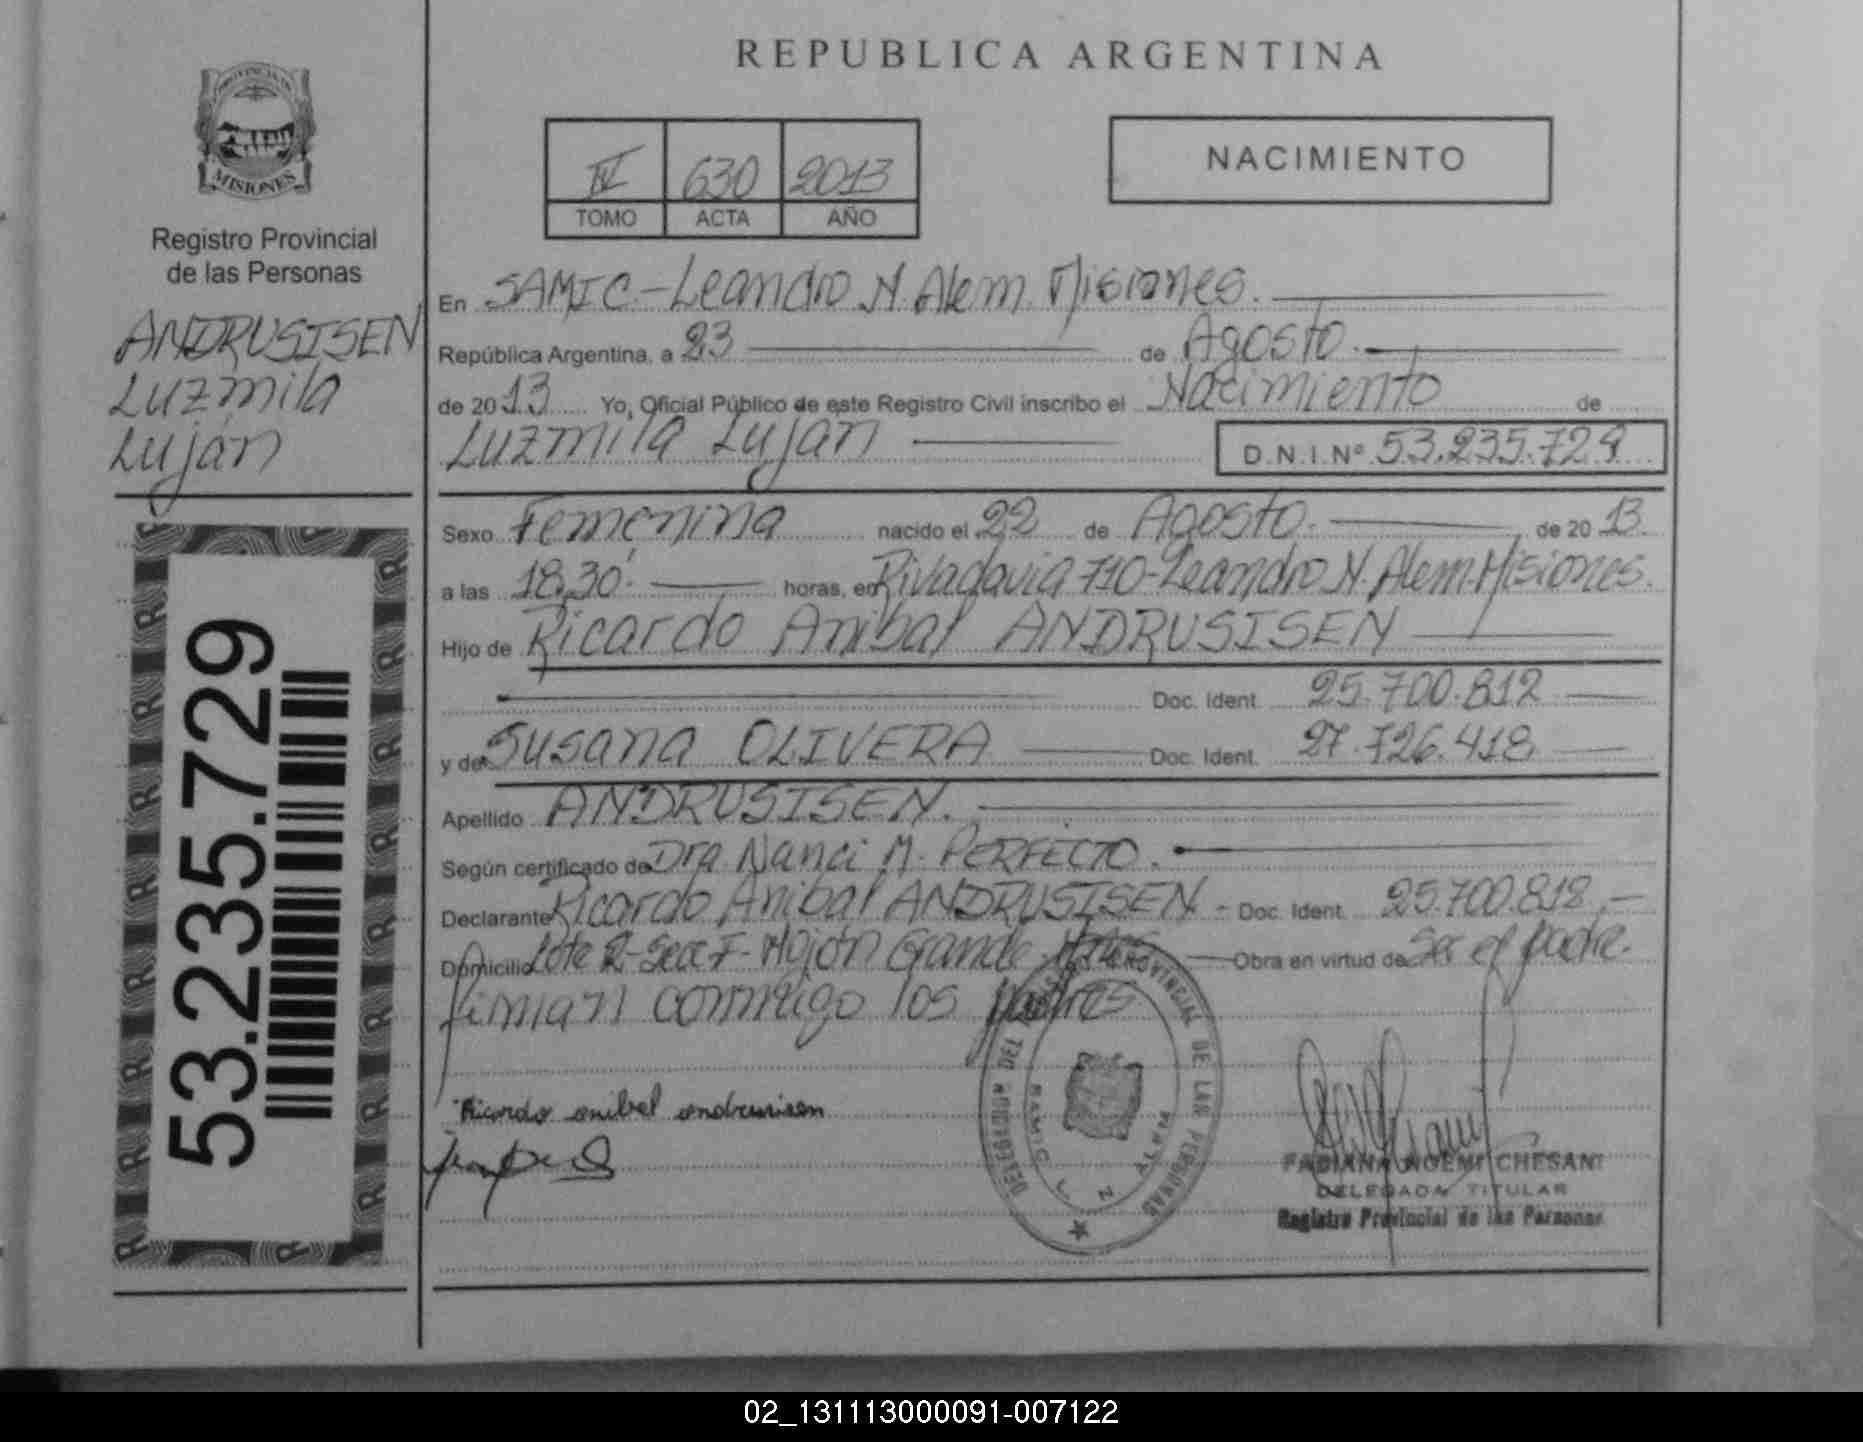 REPUBLICA ARGENTINA
PROVINCIA DE
MISIONES
Registro Provincial
de las Personas
ANDRUSISEN
Luzmila
Luján
53.235.729
IV 630 2013
TOMO ACTA AÑO
NACIMIENTO
En SAMIC.-Leandro N. Alem. Misiones.
República Argentina, a 23 de Agosto.
de 2013 Yo, Oficial Público de este Registro Civil inscribo el Nacimiento de
Luzmila Luján D.N.I. Nº 53.235.729
Sexo Femenina nacido el 22 de Agosto. de 2013.
a las 18,30. horas, en Rivadavia 710-Leandro N. Alem-Misiones.
Hijo de Ricardo Anibal ANDRUSISEN
Doc. Ident. 25.700.812
y de Susana OLIVERA Doc. Ident. 27.726.418
Apellido ANDRUSISEN.
Según certificado de Dra. Nanci M. PERFECTO.
Declarante Ricardo Anibal ANDRUSISEN - Doc. Ident. 25.700.812.-
Domicilio Lote 2-Secc F-Mojón Grande. Obra en virtud de Ser el padre.
firman conmigo los padres
Ricardo anibal andrusisen
DELEGACION DEL REGISTRO PROVINCIAL DE LAS PERSONAS
SAMIC L. N. ALEM
FABIANA NOEMI CHESANI
DELEGADA TITULAR
Registro Provincial de las Personas
02_131113000091-007122